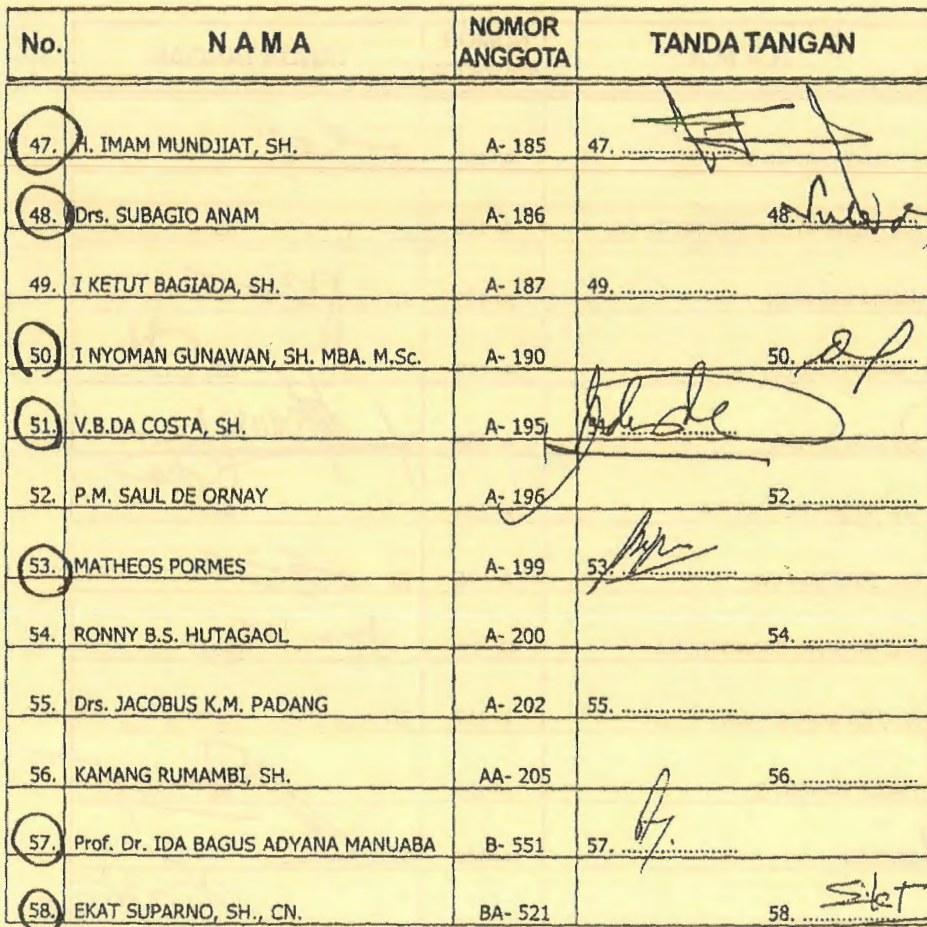 No. N A M A NOMOR ANGGOTA TANDA TANGAN
47. H. IMAM MUNDJIAT, SH. A- 185 47. ....................
48. Drs. SUBAGIO ANAM A- 186 48. ....................
49. I KETUT BAGIADA, SH. A- 187 49. ....................
50. I NYOMAN GUNAWAN, SH. MBA. M.Sc. A- 190 50. ....................
51. V.B.DA COSTA, SH. A- 195 51. ....................
52. P.M. SAUL DE ORNAY A- 196 52. ....................
53. MATHEOS PORMES A- 199 53. ....................
54. RONNY B.S. HUTAGAOL A- 200 54. ....................
55. Drs. JACOBUS K.M. PADANG A- 202 55. ....................
56. KAMANG RUMAMBI, SH. AA- 205 56. ....................
57. Prof. Dr. IDA BAGUS ADYANA MANUABA B- 551 57. ....................
58. EKAT SUPARNO, SH., CN. BA- 521 58. ....................